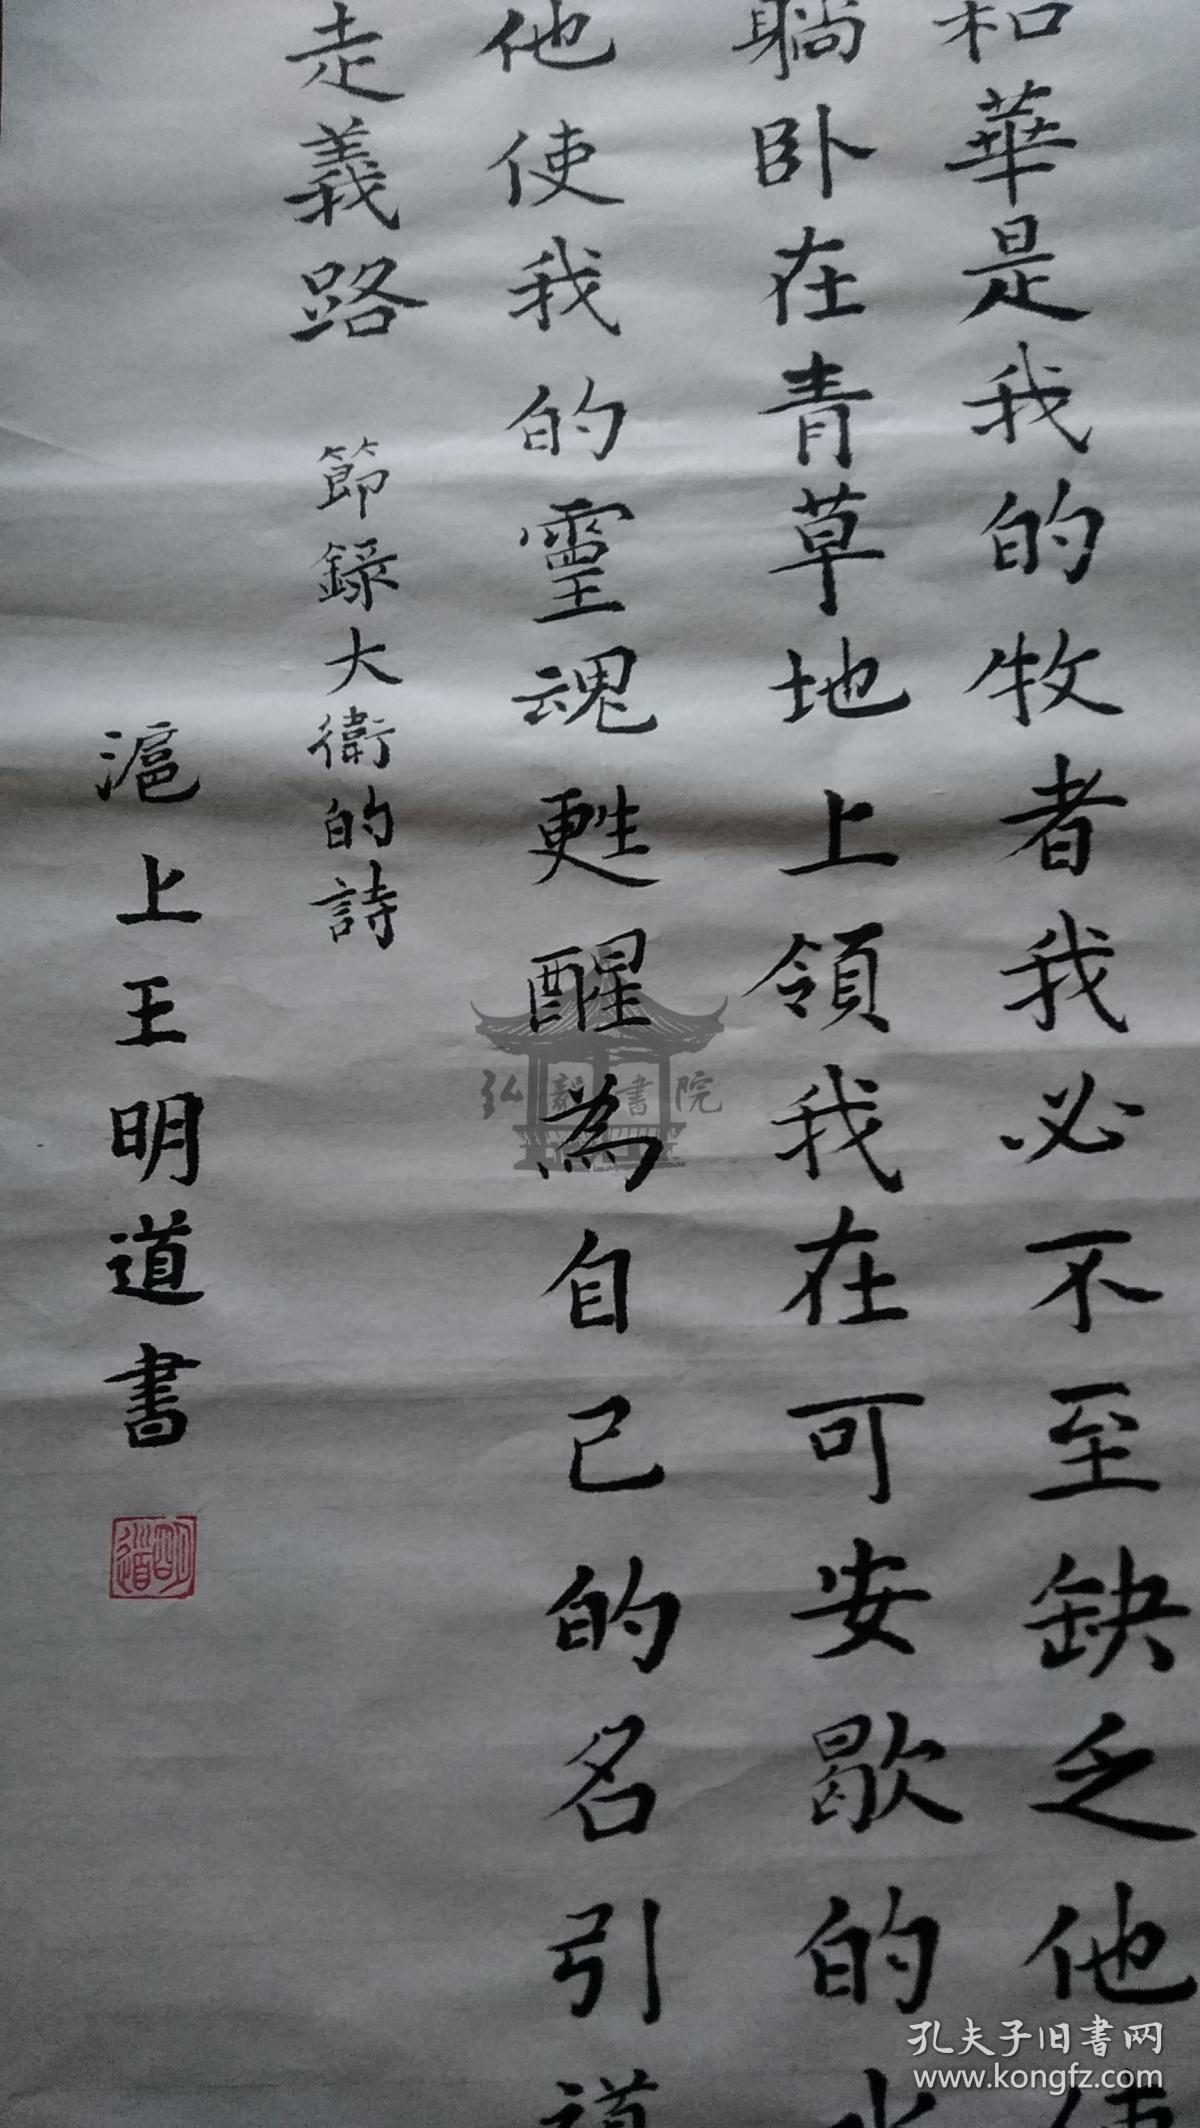 和華是我的牧者我必不至缺乏他使
躺卧在青草地上領我在可安歇的水
他使我的靈魂甦醒為自己的名引道
走義路
節錄大衛的詩
滬上王明道書
明道
弘毅書院
孔夫子旧書网
www.kongfz.com